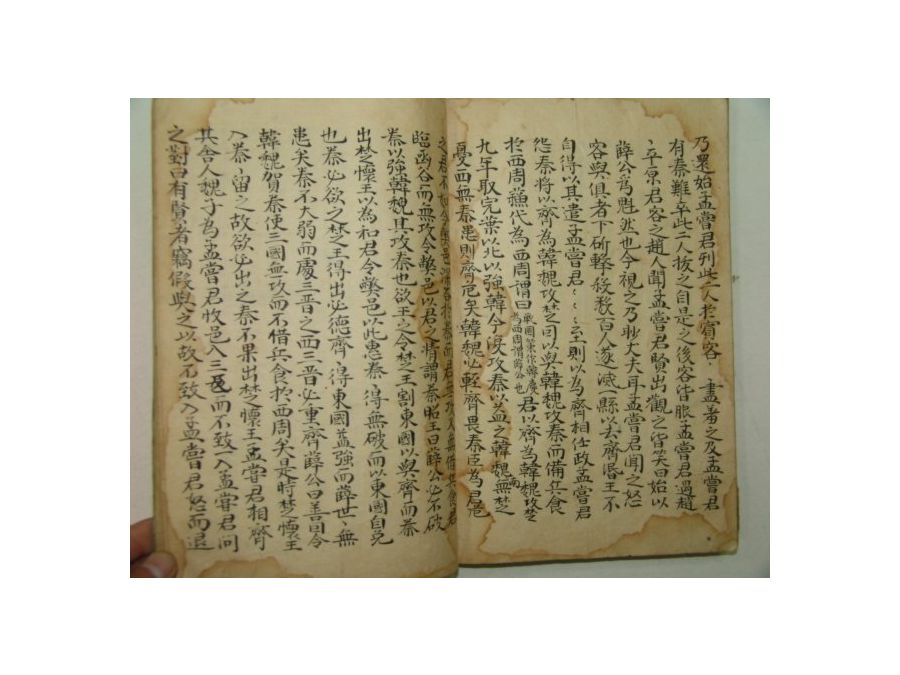 乃還始孟嘗君列此二人於賓客〻盡羞之及孟嘗君
有秦難卒此二人拔之自是之後客皆服孟嘗君過趙
〻平原君客之趙人聞孟嘗君賢出觀之皆笑曰始以
薛公為魁然也今視之乃眇大夫耳孟嘗君聞之怒
客與俱者下斫擊殺數百人遂滅一縣以去齊湣王不
自得以其遣孟嘗君〻〻〻至則以為齊相任政孟嘗君
怨秦將以齊為韓魏攻楚因以與韓魏攻秦而借兵食
於西周蘇代為西周謂曰戰國策作韓慶為西周謂薛公也君以齊為韓魏攻楚
九年取宛葉以北以強韓今復攻秦以益之韓魏南無楚
憂西無秦患則齊危矣韓魏必輕齊畏秦臣為君危
之君不如令秦君攻入無借兵食君
臨函谷而無攻令弊邑以君之情謂秦昭王曰薛公必不破
秦以強韓魏其攻秦也欲王之令楚王割東國以與齊而秦
出楚懷王以為和君令弊邑以此惠秦〻得無破而以東國自免
也秦必欲之楚王得出必德齊〻得東國益強而薛世〻無
患矣秦不大弱而處三晉之西三晉必重齊薛公曰善因令
韓魏賀秦使三國無攻而不借兵食於西周矣是時楚懷王
入秦〻留之故欲必出之秦不果出楚懷王孟嘗君相齊
其舍人魏子為孟嘗君收邑入三反而不致一入孟嘗君問
之對曰有賢者竊假與之以故不致入孟嘗君怒而退